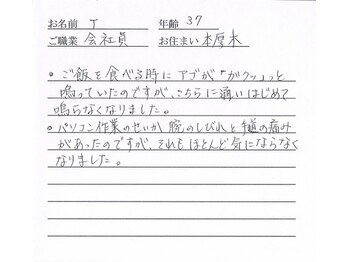 お名前 T 年齢 37
ご職業 会社員 お住まい 本厚木
・ご飯を食べる時にアゴが「ガクッ」っと
鳴っていたのですが、こちらに通いはじめて
鳴らなくなりました。
・パソコン作業のせいか、腕のしびれと手首の痛み
があったのですが、それもほとんど気にならなく
なりました。